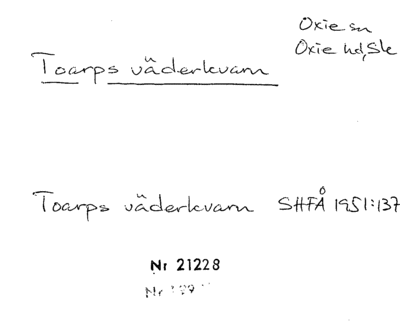 Oxie sn
Oxie hd, Sk
Toarps väderkvarn
Toarps väderkvarn SHFÅ 1951:137
Nr 21228
Nr